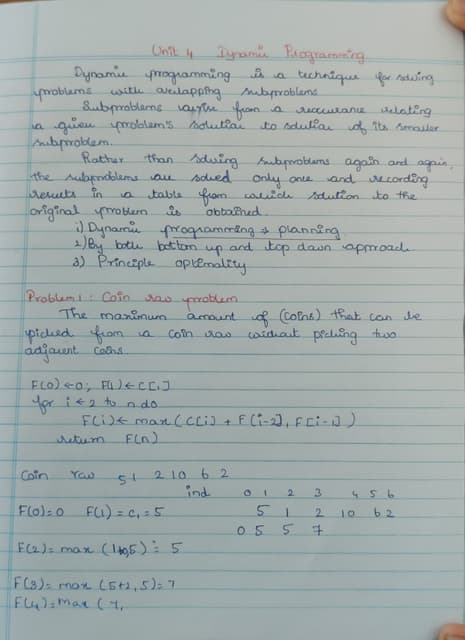 Unit 4 Dynamic Programming
Dynamic programming is a technique for solving
problems with overlapping subproblems
Subproblems arise from a reccurance relating
a given problem's solution to solution of its smaller
subproblem.
Rather than solving subproblems again and again,
the subproblems are solved only once and recording
results in a table from which solution to the
original problem is obtained.
1) Dynamic programming → planning
2) By both bottom up and top down approach
3) Principle optimality
Problem 1 : Coin row problem
The maximum amount of (coins) that can be
picked from a coin row without picking two
adjacent coins.
F(0)←0; F(1)←C[1]
for i←2 to n do
F(i)← max(C[i] + F[i-2], F[i-1])
return F(n)
Coin row 5 1 2 10 6 2
ind 0 1 2 3 4 5 6
F(0)=0 F(1) = c1 = 5 5 1 2 10 6 2
0 5 5 7
F(2)= max (1+0,5) = 5
F(3)= max (5+2, 5)= 7
F(4)= max ( 7,